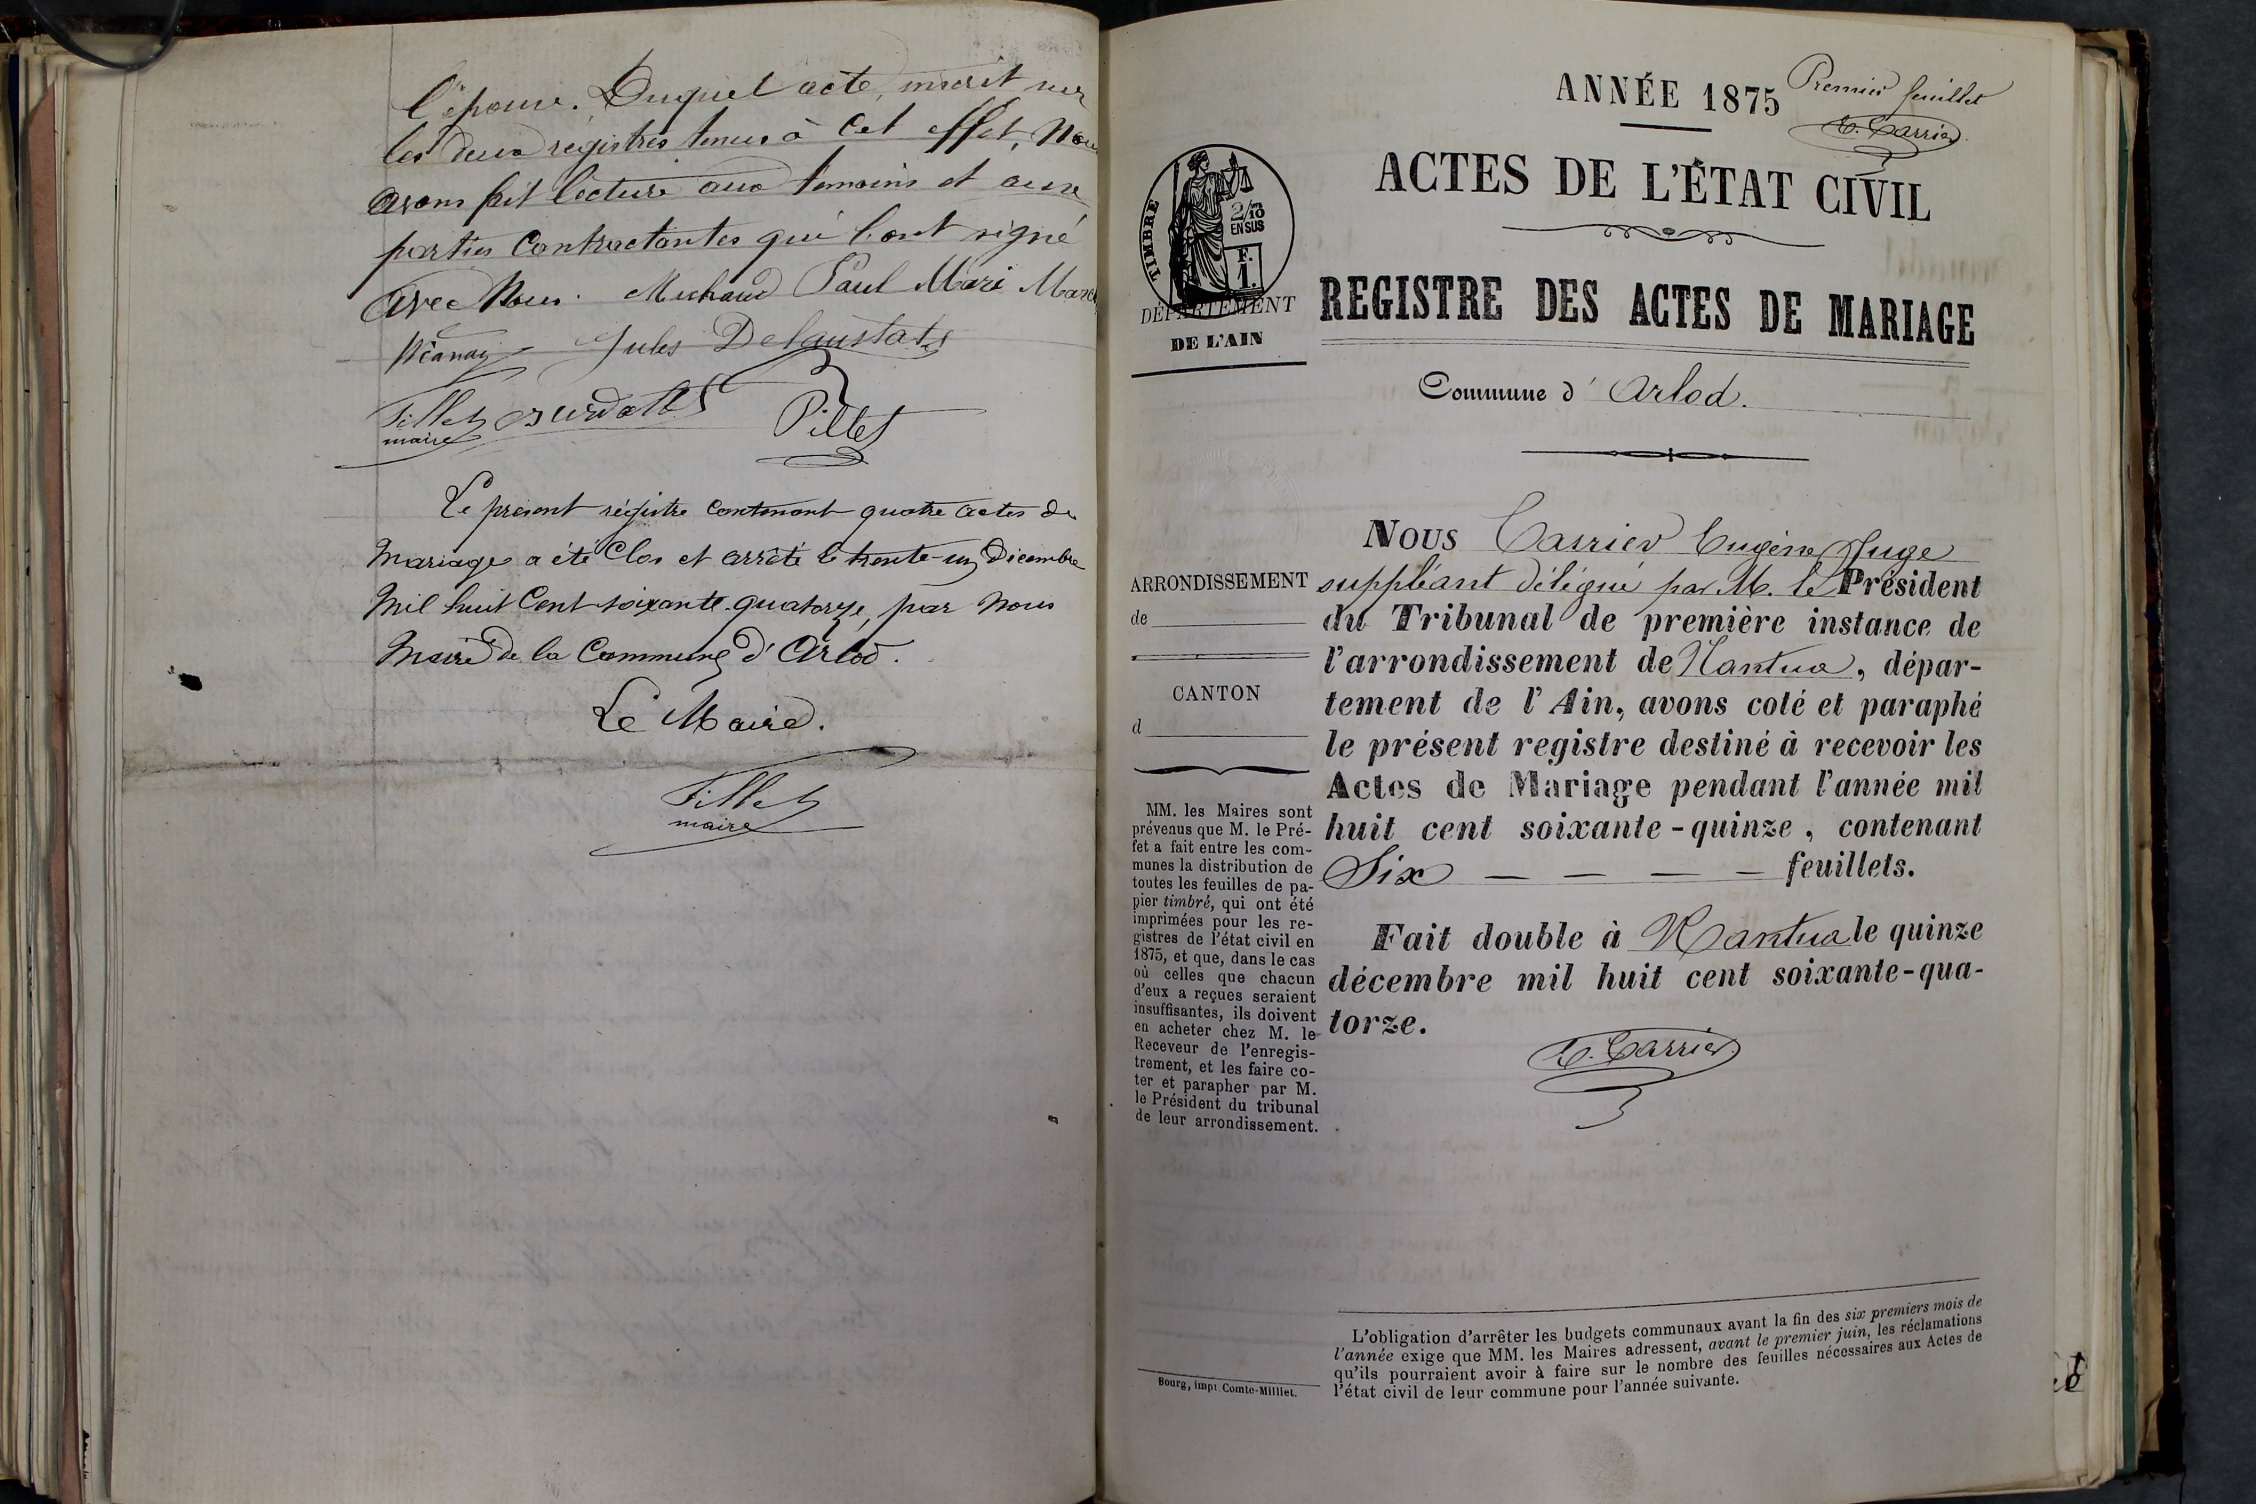 l'épouse. Duquel acte, inscrit sur
les deux registres tenus à cet effet, Nous
avons fait lecture aux temoins et aux
parties Contractantes qui l'ont signé
avec Nous. Michaud Paul Mari
Jules Delaustats
Pillet
maire
Le présent régistre contenant quatre actes de
Mariage a été Clos et arrêté le trente-un Décembre
Mil huit Cent soixante-quatorze, par Nous
Maire de la Commune d'Arlod.
Le Maire.
maire
ANNÉE 1875
Premier feuillet
E. Carrier
ACTES DE L'ÉTAT CIVIL
TIMBRE
2/10
EN SUS
F.
1.
DÉPARTEMENT
DE L'AIN
REGISTRE DES ACTES DE MARIAGE
Commune d' Arlod.
NOUS Carrier Eugène Juge
suppléant délégué par M. le Président
du Tribunal de première instance de
l'arrondissement de Nantua, dépar-
tement de l'Ain, avons coté et paraphé
le présent registre destiné à recevoir les
Actes de Mariage pendant l'année mil
huit cent soixante-quinze, contenant
Six — — — — feuillets.
Fait double à Nantua le quinze
décembre mil huit cent soixante-qua-
torze.
E. Carrier
ARRONDISSEMENT
de
CANTON
d
MM. les Maires sont
prévenus que M. le Pré-
fet a fait entre les com-
munes la distribution de
toutes les feuilles de pa-
pier timbré, qui ont été
imprimées pour les re-
gistres de l'état civil en
1875, et que, dans le cas
où celles que chacun
d'eux a reçues seraient
insuffisantes, ils doivent
en acheter chez M. le
Receveur de l'enregis-
trement, et les faire co-
ter et parapher par M.
le Président du tribunal
de leur arrondissement.
Bourg, impr. Comte-Milliet.
L'obligation d'arrêter les budgets communaux avant la fin des six premiers mois de
l'année exige que MM. les Maires adressent, avant le premier juin, les réclamations
qu'ils pourraient avoir à faire sur le nombre des feuilles nécessaires aux Actes de
l'état civil de leur commune pour l'année suivante.